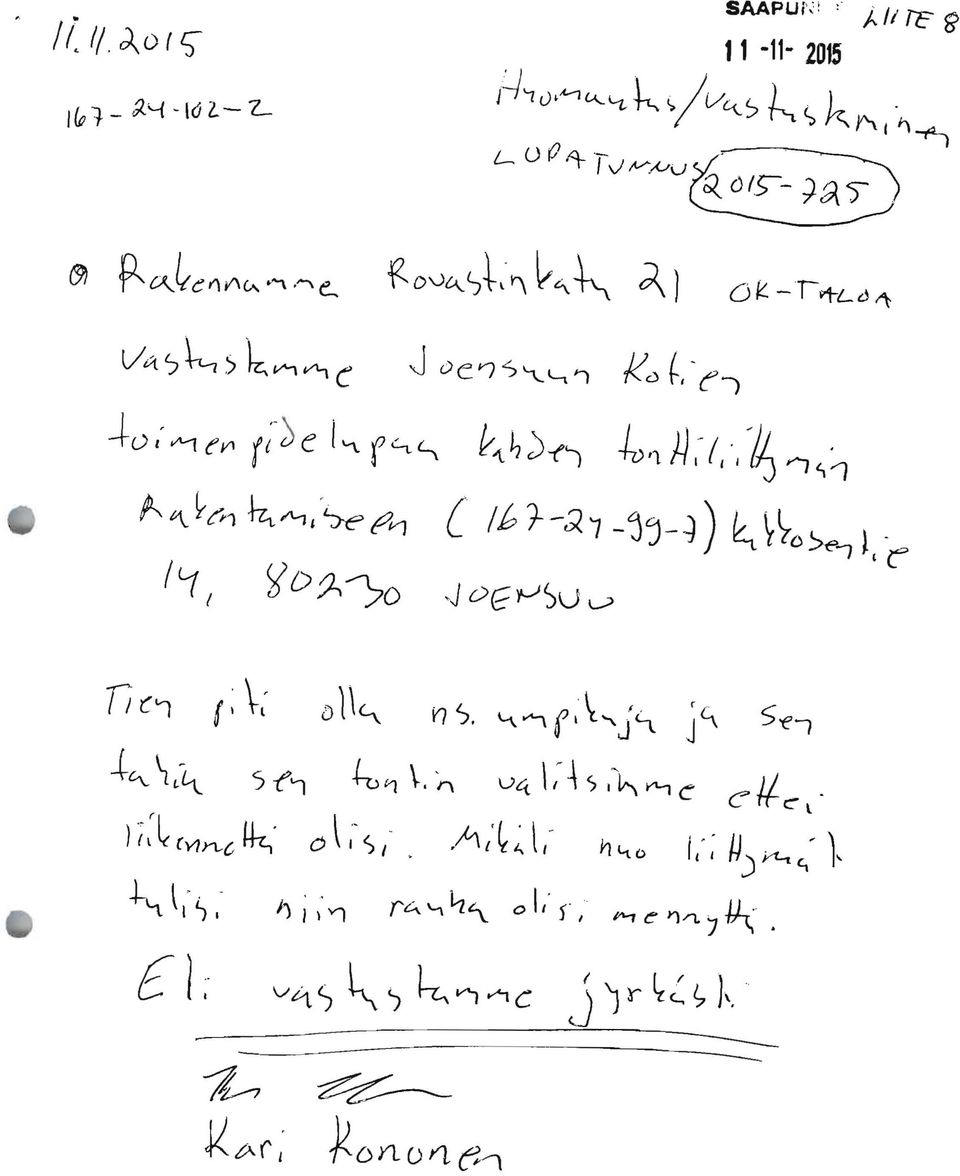 11.11.2015
SAAPUNUT
LIITE 8
11 -11- 2015
167-24-102-2
Huomautus/vastustaminen
LUPATUNNUS 2015-725
Rakennamme Rovastinkatu 21 OK-TALOA
Vastustamme Joensuun Kotien
toimenpidelupaa kahden tonttiliittymän
Rakentamiseen (167-24-99-7) kukkosentie
14, 80230 JOENSUU
Tien piti olla ns. umpikuja ja sen
takia sen tontin valitsimme ettei
liikennettä olisi. Mikäli nuo liittymät
tulisi niin rauha olisi mennyttä.
Eli vastustamme jyrkästi
Kari Kononen